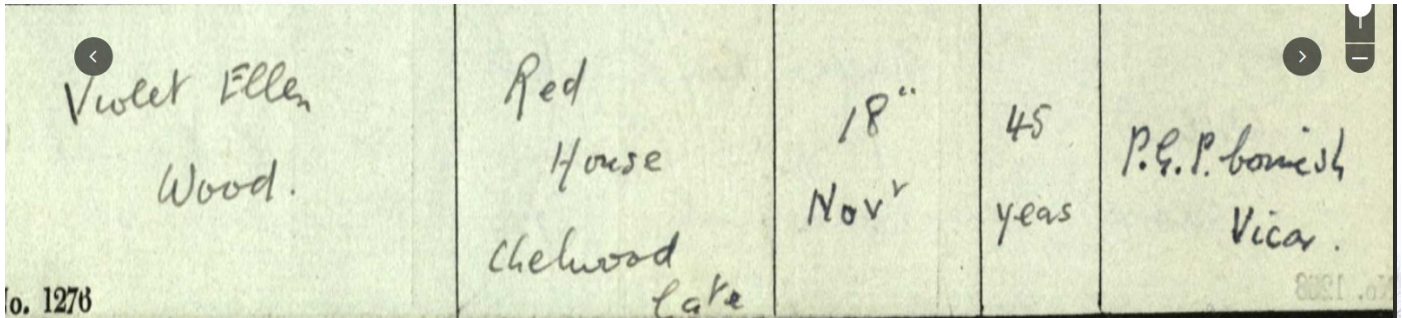 Violet Ellen
Wood.
No. 1276
Red
House
Chelwood
Gate
18"
Novr
45
yeas
P.G.P. Cornish
Vicar.
No. 1268